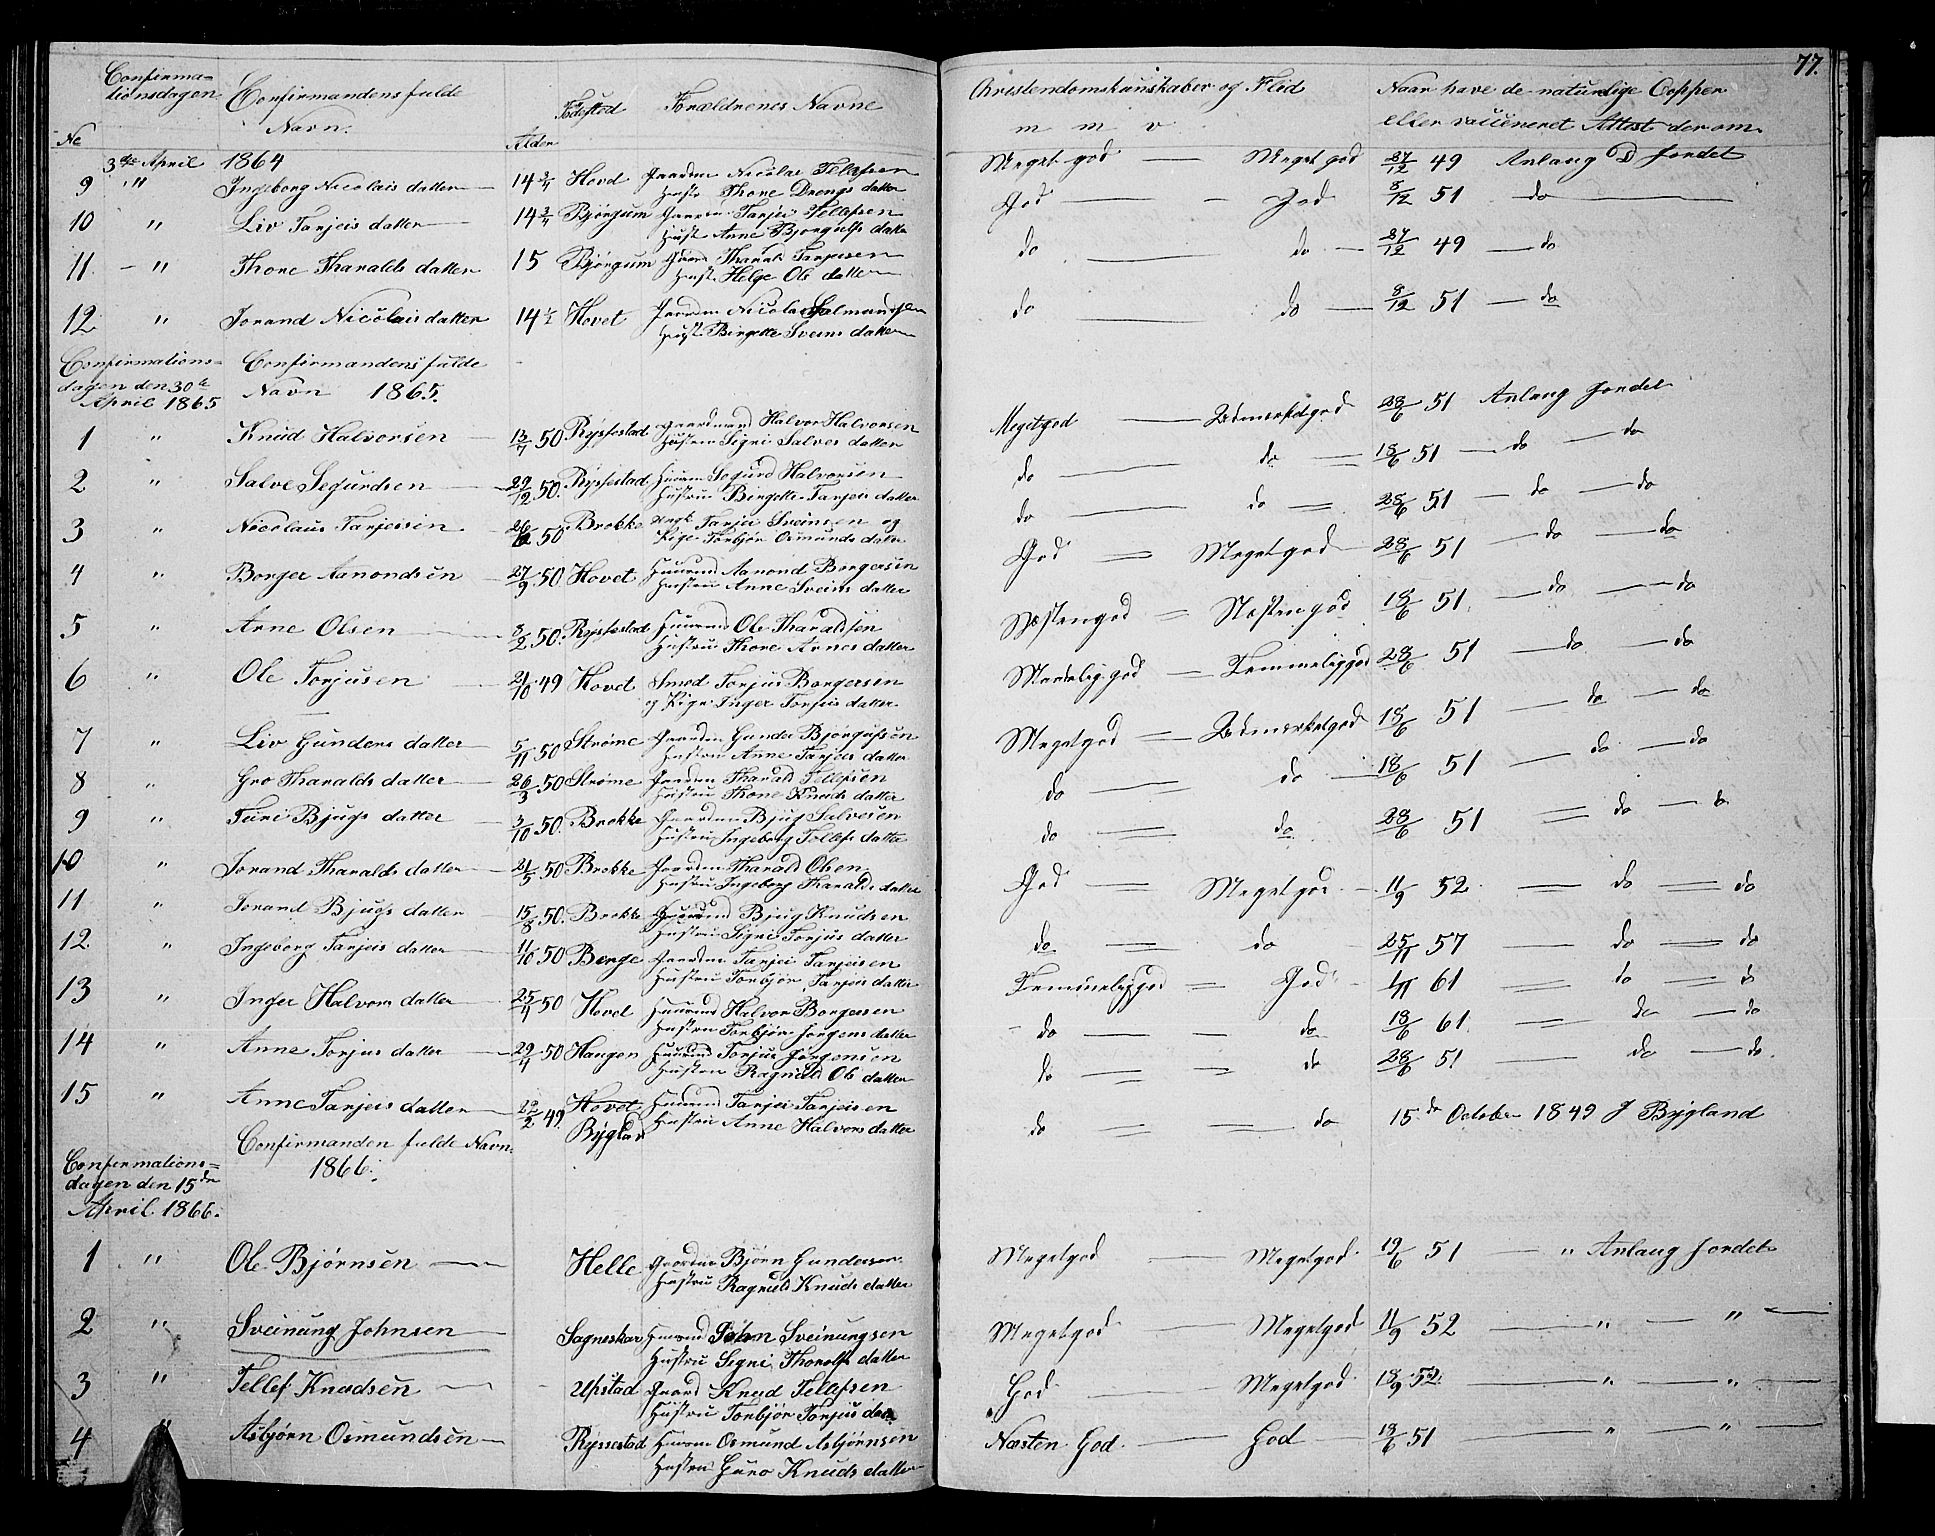 77.
Confirma=
tionsdagen Confirmandens fulde Fødested Forældrenes Navne Christendomskunskaber og Flid Naar have de naturlige Copper
No Navn. Alder m m v eller vaccineret Attest derom
3die April 1864
9 " Ingeborg Nicolais datter 14 3/4 Hovd Gaardm Nicolai Tellefsen Meget god — Meget god 27/12 49 Anlaug Jordet
Hustr Thone Drengs datter
10 " Liv Tarjeis datter 14 3/4 Bjørgum Gaardm Tarjei Tellefsen God — God 8/12 51 do
Hust Anne Bjorgulfs datter
11 – " Thone Tharalds datter 15 Bjørgum Gaard Tharald Tarjeisen do — do 27/12 49 — do
Hust Helge Ols datter
12 " Jorand Nicolais datter 14 1/2 Hovet Gaardm Nicolai Salmundsen do — do 8/12 51 — do
Hust Birgette Sveins datter
Confirmations- Confirmandens fulde
dagen den 30te Navn 1865.
April 1865
1 " Knud Halvorsen 13/7 50 Ryssestad Gaardmand Halvor Halvorsen Megetgod — Udmerketgod 28/6 51 Anlaug Jordet
Hustru Signi Salves datter
2 " Salve Segurdsen 29/12 50. Ryssestad Huusm Segurd Halvorsen do — do 18/6 51 — do — do
Hustru Birgette Tarjeis datter
3 " Nicolaus Tarjeisen 26/6 50 Brokke Ungk Tarjei Sveinsen og do — do 28/6 51 — do — do
Pige Torbjør Osmunds datter
4 " Borger Aamondsen 27/9 50 Hovet Huusmd Aamond Borgersen God — Megetgod 28/6 51 — do — do
Hustru Anne Sveins datter
5 " Arne Olsen 3/2 50. Ryssestad Huusmd Ole Tharaldsen Næstengod — Næstengod 18/6 51 — do — do
Hustru Thone Arnes datter
6 " Ole Torjusen 21/10 49 Hovet Smed Torjus Borgersen Maadeliggod — Temmeliggod 28/6 51 — do — do
og Pige Inger Torjeis datter
7 " Liv Gundens datter 5/11 50 Strøme Gaardm Gunder Bjørgufsen Megetgod — Udmerketgod 18/6 51 — do — do
Hustru Anne Tarjeis datter
8 " Gro Tharalds datter 26/3 50 Strøme Gaardm Tharald Tellefsen do — do 18/6 51 — do — do
Hustru Thone Knuds datter
9 " Turi Bjugs datter 3/10 50. Brokke Gaardm Bjug Salvesen do — do 28/6 51 — do — do
Hustru Ingeborg Tellefs datter
10 " Jorand Tharalds datter 21/5 50 Brokke Gaardm Tharald Olsen God — Megetgod 11/9 52. — do — do
Hustru Ingeborg Tharalds datter
11 " Jorand Bjugs datter 15/8 50. Brokke Huusmd Bjug Knudsen do — do 25/11 57 — do — do
Hustru Signi Torjus datter
12. " Ingeborg Tarjeis datter 11/10 50 Berge Gaardm Tarjei Tarjeisen Temmeliggod — God 1/11 61 — do — do
Hustru Torbjør Tarjeis datter
13 " Inger Halvors datter 25/4 50 Hovet Huusmd Halvor Borgersen do — do 18/6 61. — do — do
Hustru Torbjør Jorgens datter
14 " Anne Torjus datter 29/4 50 Haugen Huusmd Torjus Jørgensen do — do 28/6 51 — do — do.
Hustru Ragnild Ols datter
15 " Anne Tarjeis datter 22/2 49 Hovet Huusmd Tarjei Tarjeisen do — do 15de October 1849 I Bygland
Bygland Hustru Anne Halvors datter
Confirmations= Confirmanden fulde Navn
dagen den 15de 1866.
April 1866.
1 " Ole Bjørnsen Helle Gaardm Bjørn Gundersen Megetgod — Megetgod 19/6 51 — " Anlaug Jordet
Hustru Ragnild Knuds datter
2 " Sveinung Johnsen Sagneskar Huusmd John Sveinungsen Megetgod — Megetgod 11/9 52 — " — "
Hustru Signi Thorolfs datter
3 " Tellef Knudsen Upstad Gaard Knud Tellefsen God — Megetgod 18/9 52. — " — "
Hustru Torbjør Torjus dat.
4 " Asbjørn Osmundsen Ryssestad Huusm Osmund Asbjørnsen Næsten God. — God 18/6 51 — " — "
Hustru Guro Knuds datter